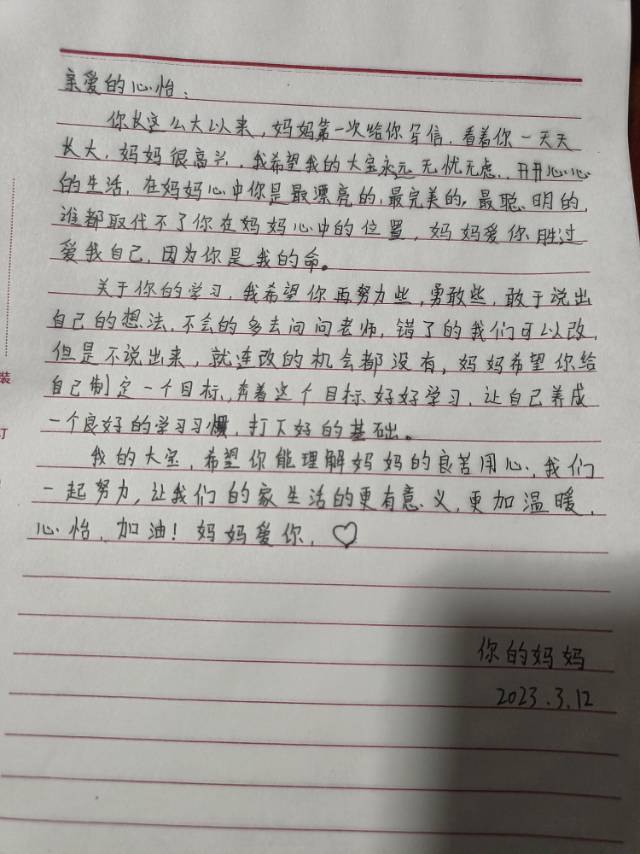 亲爱的心怡：
你长这么大以来，妈妈第一次给你写信，看着你一天天
长大，妈妈很高兴，我希望我的大宝永远无忧无虑，开开心心
的生活，在妈妈心中你是最漂亮的，最完美的，最聪明的，
谁都取代不了你在妈妈心中的位置，妈妈爱你胜过
爱我自己，因为你是我的命。
关于你的学习，我希望你再努力些，勇敢些，敢于说出
自己的想法，不会的多去问问老师，错了的我们可以改，
但是不说出来，就连改的机会都没有，妈妈希望你给
自己制定一个目标，奔着这个目标好好学习，让自己养成
一个良好的学习习惯，打下好的基础。
我的大宝，希望你能理解妈妈的良苦用心，我们
一起努力，让我们的家生活的更有意义，更加温暖，
心怡，加油！妈妈爱你，♡
你的妈妈
2023.3.12
装
订